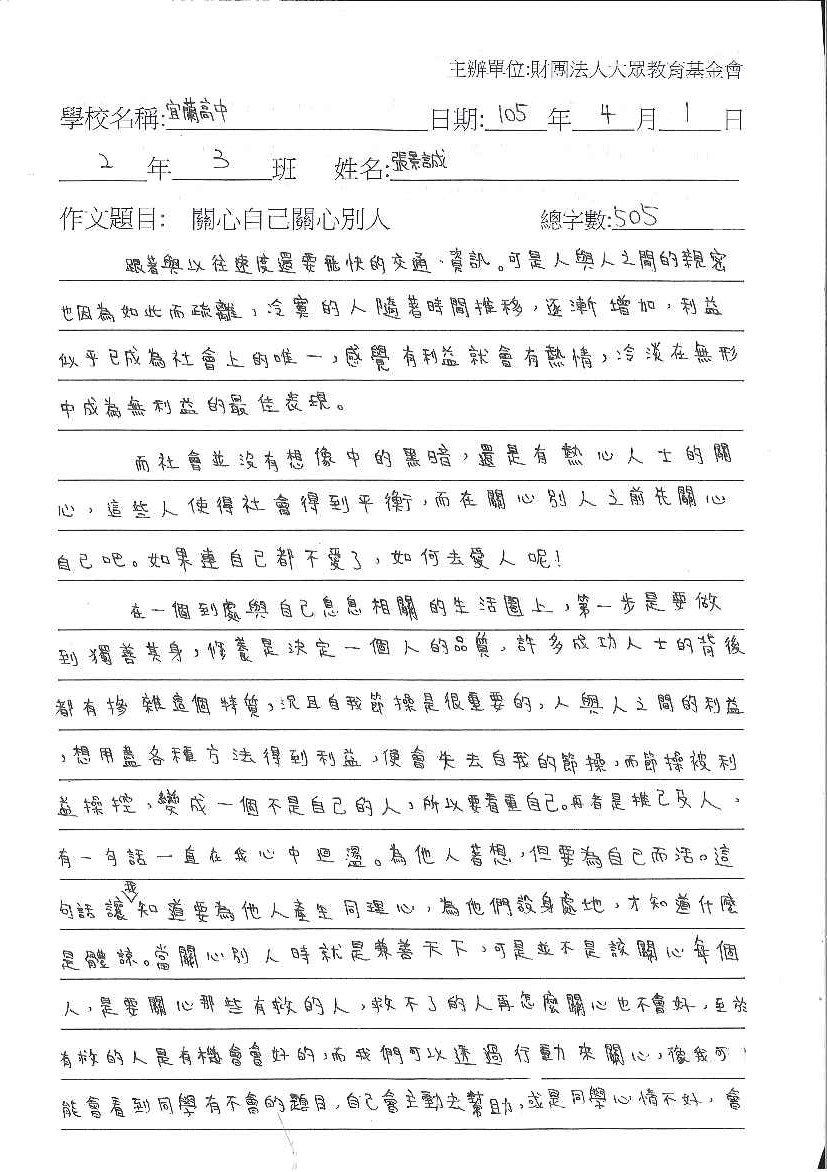 主辦單位:財團法人大眾教育基金會
學校名稱:宜蘭高中 日期:105年4月1日
2年3班 姓名:張景誠
作文題目: 關心自己關心別人 總字數:505
跟著與以往速度還要飛快的交通、資訊。可是人與人之間的親密
也因為如此而疏離,冷寞的人隨著時間推移,逐漸增加,利益
似乎已成為社會上的唯一,感覺有利益就會有熱情,冷淡在無形
中成為無利益的最佳表現。
而社會並沒有想像中的黑暗,還是有熱心人士的關
心,這些人使得社會得到平衡,而在關心別人之前先關心
自己吧。如果連自己都不愛了,如何去愛人呢!
在一個到處與自己息息相關的生活圈上,第一步是要做
到獨善其身,修養是決定一個人的品質,許多成功人士的背後
都有摻雜這個特質,況且自我節操是很重要的,人與人之間的利益
,想用盡各種方法得到利益,便會失去自我的節操,而節操被利
益操控,變成一個不是自己的人,所以要看重自己。再者是推己及人,
有一句話一直在我心中迴盪。為他人著想,但要為自己而活。這
句話讓我知道要為他人產生同理心,為他們設身處地,才知道什麼
是體諒。當關心別人時就是兼善天下,可是並不是該關心每個
人,是要關心那些有救的人,救不了的人再怎麼關心也不會好,至於
有救的人是有機會會好的,而我們可以透過行動來關心,像我可
能會看到同學有不會的題目,自己會主動去幫助,或是同學心情不好,會